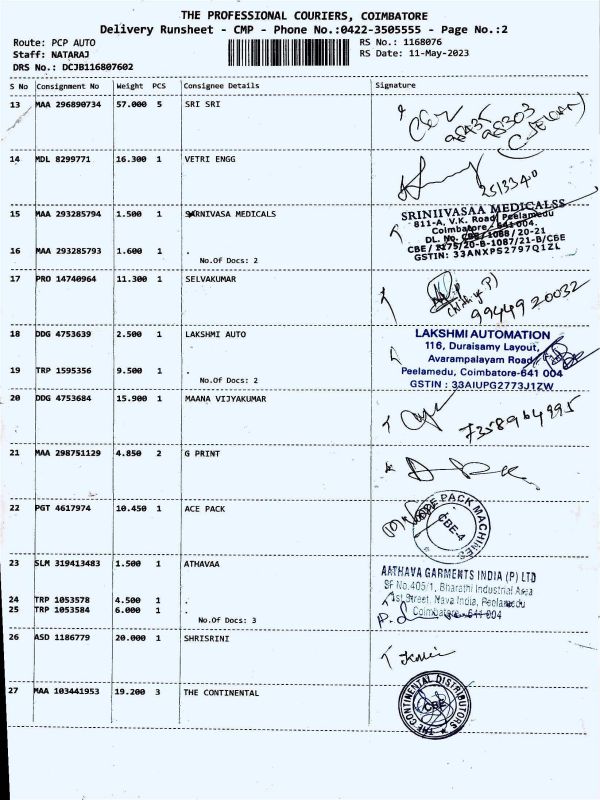 THE PROFESSIONAL COURIERS, COIMBATORE
Delivery Runsheet - CMP - Phone No.:0422-3505555 - Page No.:2
Route: PCP AUTO RS No.: 1168076
Staff: NATARAJ RS Date: 11-May-2023
DRS No.: DCJB116807602
S No Consignment No Weight PCS Consignee Details Signature
13 MAA 296890734 57.000 5 SRI SRI
98435
98303
14 MDL 8299771 16.300 1 VETRI ENGG
2513340
15 MAA 293285794 1.500 1 SARNIVASA MEDICALS
SRINIIVASAA MEDICALSS
811-A, V.K. Road, Peelamedu
Coimbatore - 641 004.
16 MAA 293285793 1.600 1 .
No.Of Docs: 2
GSTIN: 33ANXPS2797Q1ZL
17 PRO 14740964 11.300 1 SELVAKUMAR
9944920032
18 DDG 4753639 2.500 1 LAKSHMI AUTO
LAKSHMI AUTOMATION
116, Duraisamy Layout,
Avarampalayam Road
19 TRP 1595356 9.500 1 .
Peelamedu, Coimbatore-641 004
No.Of Docs: 2
GSTIN : 33AIUPG2773J1ZW
20 DDG 4753684 15.900 1 MAANA VIJYAKUMAR
7358964995
21 MAA 298751129 4.850 2 G PRINT
22 PGT 4617974 10.450 1 ACE PACK
PACK MACHINES
CBE-4
23 SLM 319413483 1.500 1 ATHAVAA
AATHAVA GARMENTS INDIA (P) LTD
SF No.405/1, Bharathi Industrial Area
24 TRP 1053578 4.500 1 .
1st Street, Nava India, Peelamedu
25 TRP 1053584 6.000 1 .
Coimbatore-641 004
No.Of Docs: 3
26 ASD 1186779 20.000 1 SHRISRINI
27 MAA 103441953 19.200 3 THE CONTINENTAL
CONTINENTAL DISTRIBUTORS
CBE